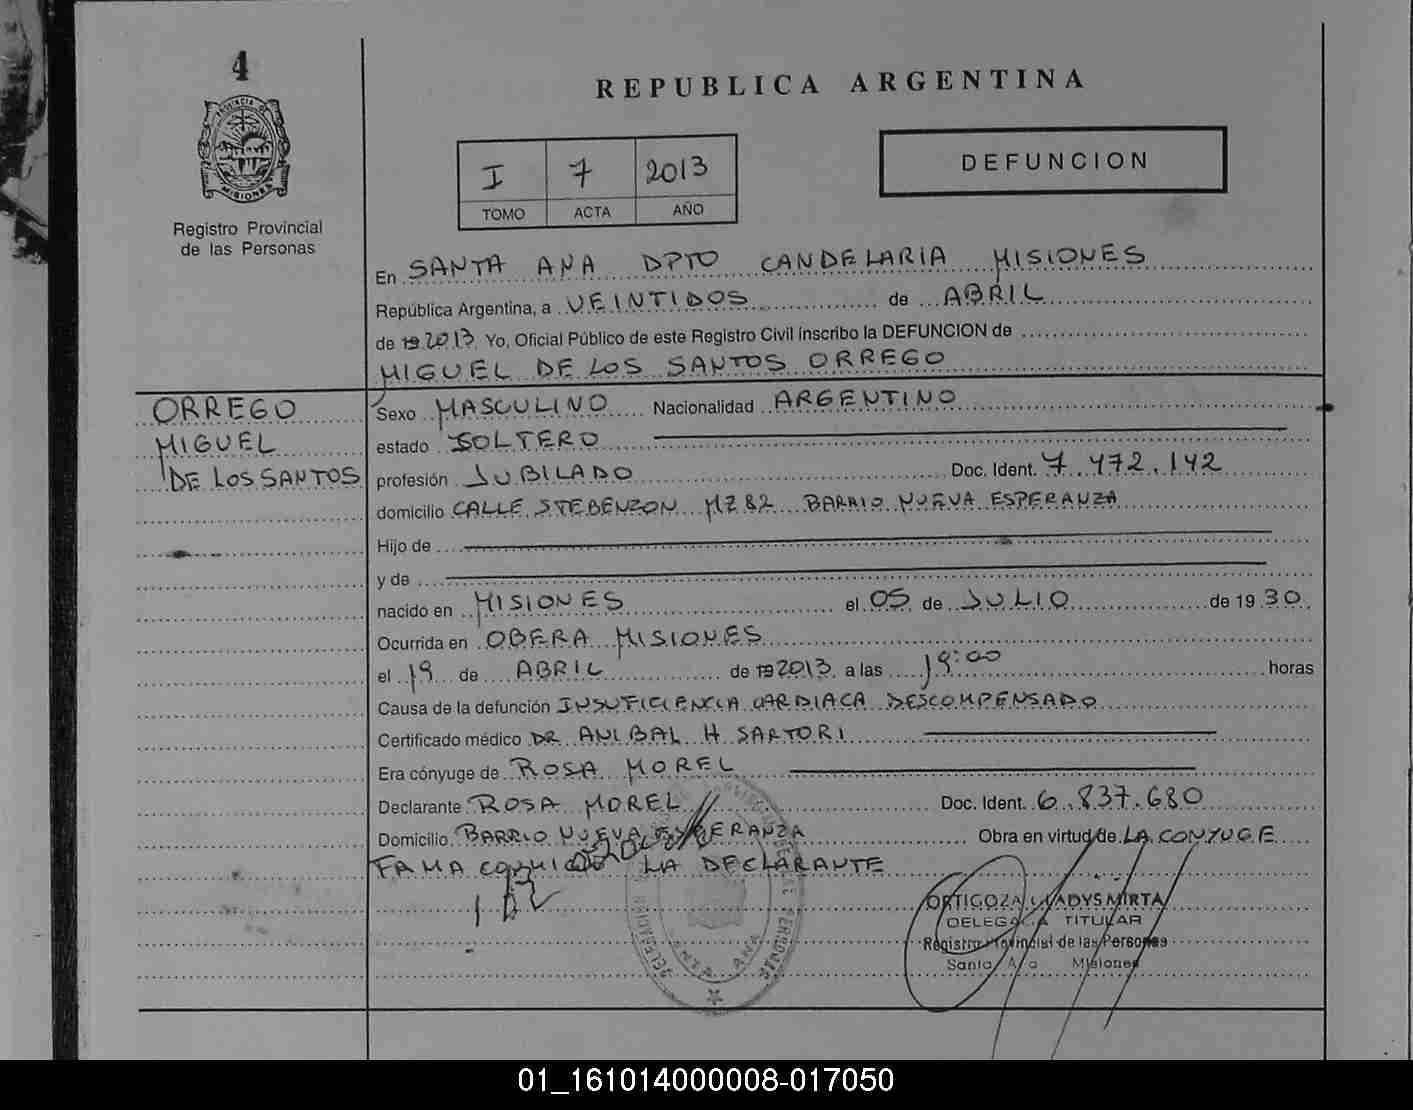 4
PROVINCIA DE
MISIONES
Registro Provincial
de las Personas
REPUBLICA ARGENTINA
I 7 2013
TOMO ACTA AÑO
DEFUNCION
En SANTA ANA DPTO CANDELARIA MISIONES
República Argentina, a VEINTIDOS de ABRIL
de 19 2013 Yo, Oficial Público de este Registro Civil inscribo la DEFUNCION de
MIGUEL DE LOS SANTOS ORREGO
ORREGO
MIGUEL
DE LOS SANTOS
Sexo MASCULINO Nacionalidad ARGENTINO
estado SOLTERO
profesión JUBILADO Doc. Ident. 7.472.142
domicilio CALLE STEBENZON MZ 82 BARRIO NUEVA ESPERANZA
Hijo de
y de
nacido en MISIONES el 05 de JULIO de 1930
Ocurrida en OBERA MISIONES
el 19 de ABRIL de 19 2013 a las 19:00 horas
Causa de la defunción INSUFICIENCIA CARDIACA DESCOMPENSADO
Certificado médico DR ANIBAL H SARTORI
Era cónyuge de ROSA MOREL
Declarante ROSA MOREL Doc. Ident. 6.837.680
Domicilio BARRIO NUEVA ESPERANZA Obra en virtud de LA CONYUGE
LA DECLARANTE
SANTA ANA
ORTIGOZA GLADYS MIRTA
DELEGADA TITULAR
Registro Provincial de las Personas
Santa Ana Misiones
01_161014000008-017050